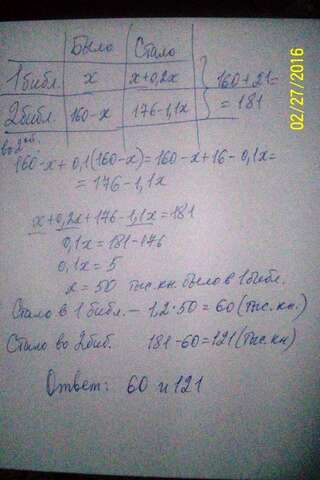 Было Стало
1 библ. x x+0,2x } 160+21=
2библ. 160-x 176-1,1x = 181
во 2ой
160-x+0,1(160-x)=160-x+16-0,1x=
=176-1,1x
x+0,2x+176-1,1x=181
0,1x=181-176
0,1x=5
x=50 тыс.кн. было в 1 библ.
Стало в 1 библ. - 1,2·50=60 (тыс.кн.)
Стало во 2биб. 181-60=121(тыс.кн)
Ответ: 60 и 121
02/27/2016